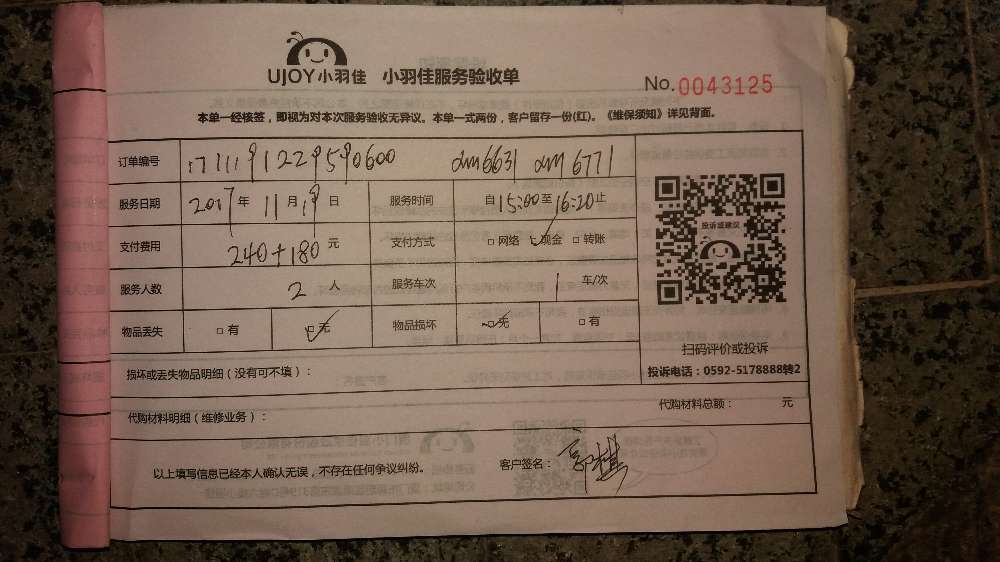 UJOY小羽佳 小羽佳服务验收单
No.0043125
本单一经核签，即视为对本次服务验收无异议。本单一式两份，客户留存一份(红)。《维保须知》详见背面。
订单编号 1711191229590600 xm6631 xm6771
服务日期 2017年11月19日 服务时间 自15:00至16:20止
支付费用 240+180 元 支付方式 □网络 □现金 □转账
服务人数 2 人 服务车次 1 车/次
物品丢失 □有 □无 物品损坏 □无 □有
投诉或建议
扫码评价或投诉
投诉电话：0592-5178888转2
损坏或丢失物品明细（没有可不填）：
代购材料明细（维修业务）： 代购材料总额： 元
以上填写信息已经本人确认无误，不存在任何争议纠纷。 客户签名：